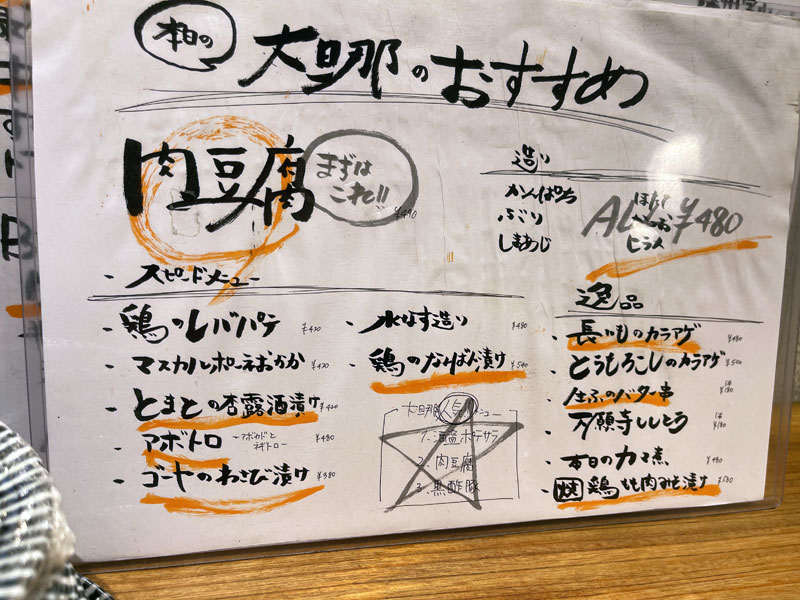 本日の
大旦那のおすすめ
肉豆腐
まずは
これ!!
¥490
造り
かんぱち
ぶり
しまあじ
ヒラメ
ALL ¥480
- スピードメニュー
・鶏のレバパテ ¥420
・マスカルポーネおかか ¥420
・とまとの杏露酒漬け ¥420
・アボトロ -アボカドとネギトロ- ¥480
・ゴーヤのわさび漬け ¥380
・水なす造り ¥480
・鶏のなんばん漬け ¥540
大旦那人気メニュー
2. 肉豆腐
3. 黒酢豚
逸品
・長いものカラアゲ ¥480
・とうもろこしのカラアゲ ¥500
・生ふのバター串 1本 ¥180
・万願寺ししとう 1本 ¥180
・本日のカマ煮 ¥480
・焼 鶏もも肉みそ漬け ¥580